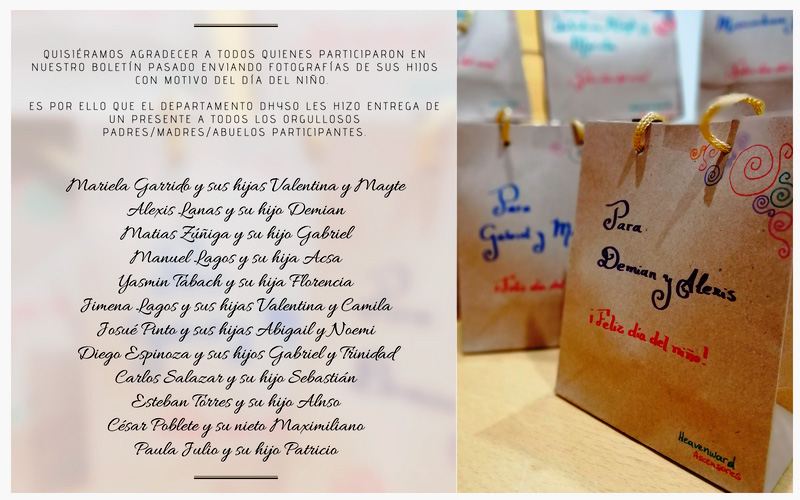 QUISIÉRAMOS AGRADECER A TODOS QUIENES PARTICIPARON EN
NUESTRO BOLETÍN PASADO ENVIANDO FOTOGRAFÍAS DE SUS HIJOS
CON MOTIVO DEL DÍA DEL NIÑO.
ES POR ELLO QUE EL DEPARTAMENTO DHYSO LES HIZO ENTREGA DE
UN PRESENTE A TODOS LOS ORGULLOSOS
PADRES/MADRES/ABUELOS PARTICIPANTES.
Mariela Garrido y sus hijas Valentina y Mayte
Alexis Lanas y su hijo Demian
Matias Zúñiga y su hijo Gabriel
Manuel Lagos y su hija Acsa
Yasmin Tabach y su hija Florencia
Jimena Lagos y sus hijas Valentina y Camila
Josué Pinto y sus hijas Abigail y Noemi
Diego Espinoza y sus hijos Gabriel y Trinidad
Carlos Salazar y su hijo Sebastián
Esteban Torres y su hijo Alnso
César Poblete y su nieto Maximiliano
Paula Julio y su hijo Patricio
Para
Gabriel y M
¡Feliz día del
Para
Demian y Alexis
¡Feliz día del niño!
Heavenward
Ascensores